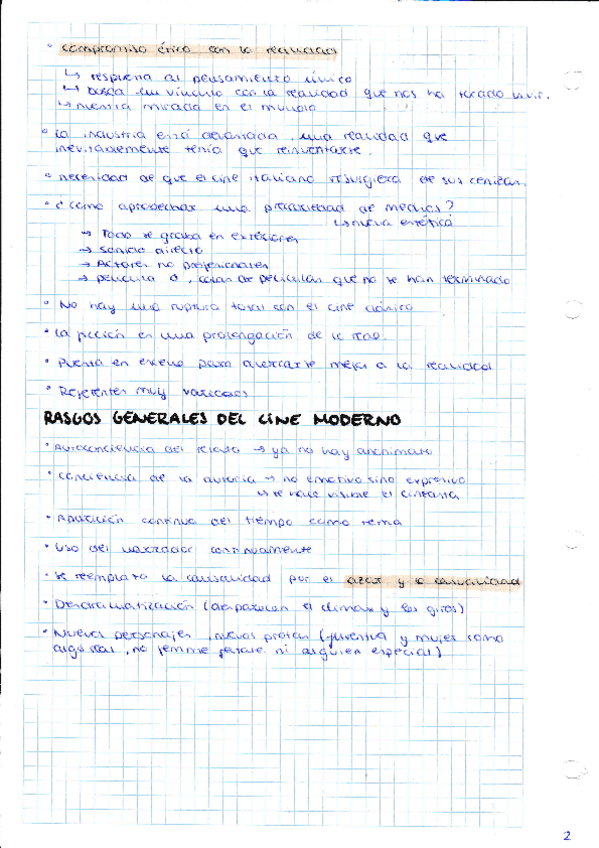 · compromiso ético con la realidad
↳ respuesta al pensamiento único
↳ busca un vínculo con la realidad que nos ha tocado vivir.
↳ nuestra mirada en el mundo
· la industria está devastada, una realidad que
inevitablemente tenía que reinventarse.
· necesidad de que el cine italiano resurgiera de sus cenizas.
· ¿cómo aprovechar una precariedad de medios?
↳ nueva estética
→ Todo se graba en exteriores
→ sonido directo
→ Actores no profesionales
→ película, colas de películas que no se han terminado
· No hay una ruptura total con el cine clásico
· La ficción es una prolongación de lo real.
· Puesta en escena para acercarse mejor a la realidad
· Referentes muy variados
RASGOS GENERALES DEL CINE MODERNO
· Autoconciencia del relato → ya no hay anonimato
· Conciencia de la autoría → no emotivo sino expresivo
↳ se hace visible el cineasta
· Aparición continua del tiempo como tema
· Uso del narrador continuamente
· Se reemplaza la causalidad por el azar y la casualidad
· Desdramatización (desaparecen el clímax y los giros)
· Nuevos personajes, nuevos protas (juventud y mujer como
algo real, no femme fatale ni alguien especial)
2